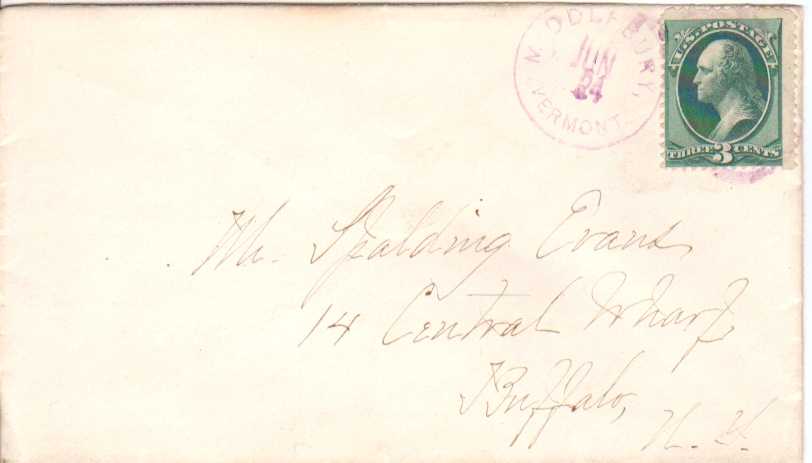 MIDDLEBURY,
JUN
24
VERMONT.
U.S. POSTAGE
THREE 3 CENTS
Mr. Spalding Evans
14 Central Wharf,
Buffalo,
N. Y.